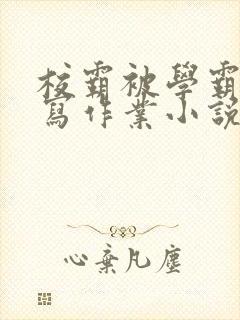 校霸被學霸
寫作業小說
心棄凡塵